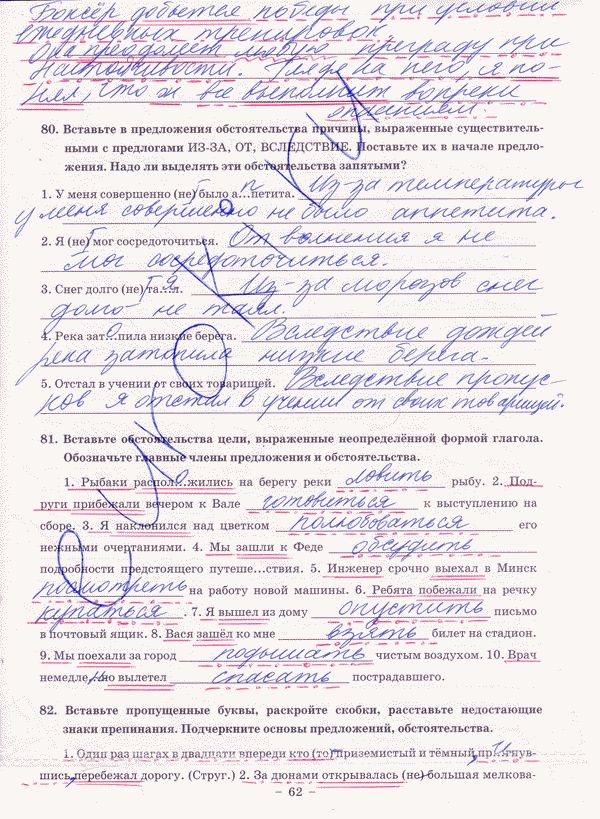 Боксёр добьется победы при условии
ежедневных тренировок.
Она преодолеет любую преграду при
настойчивости. Глядя на него, я по-
нял, что ж все выполнит вопреки
опасениям.
80. Вставьте в предложения обстоятельства причины, выраженные существитель-
ными с предлогами ИЗ-ЗА, ОТ, ВСЛЕДСТВИЕ. Поставьте их в начале предло-
жения. Надо ли выделять эти обстоятельства запятыми?
1. У меня совершенно (не) было а...петита. п Из-за температуры
у меня совершенно не было аппетита.
2. Я (не) мог сосредоточиться. От волнения я не
мог сосредоточиться.
3. Снег долго (не) та...л. я Из-за морозов снег
долго не таял.
4. Река зат...пила низкие берега. о Вследствие дождей
река затопила низкие берега.
5. Отстал в учении от своих товарищей. Вследствие пропус-
ков я отстал в учении от своих товарищей.
81. Вставьте обстоятельства цели, выраженные неопределённой формой глагола.
Обозначьте главные члены предложения и обстоятельства.
1. Рыбаки распол...жились на берегу реки ловить рыбу. 2. Под-
руги прибежали вечером к Вале готовиться к выступлению на
сборе. 3. Я наклонился над цветком полюбоваться его
нежными очертаниями. 4. Мы зашли к Феде обсудить
подробности предстоящего путеше...ствия. 5. Инженер срочно выехал в Минск
посмотреть на работу новой машины. 6. Ребята побежали на речку
купаться. 7. Я вышел из дому опустить письмо
в почтовый ящик. 8. Вася зашёл ко мне взять билет на стадион.
9. Мы поехали за город подышать чистым воздухом. 10. Врач
немедле...но вылетел спасать пострадавшего.
82. Вставьте пропущенные буквы, раскройте скобки, расставьте недостающие
знаки препинания. Подчеркните основы предложений, обстоятельства.
1. Один раз шагах в двадцати впереди кто (то) приземистый и тёмный пр...гнув-
шись, перебежал дорогу. (Струг.) 2. За дюнами открывалась (не) большая мелкова-
– 62 –